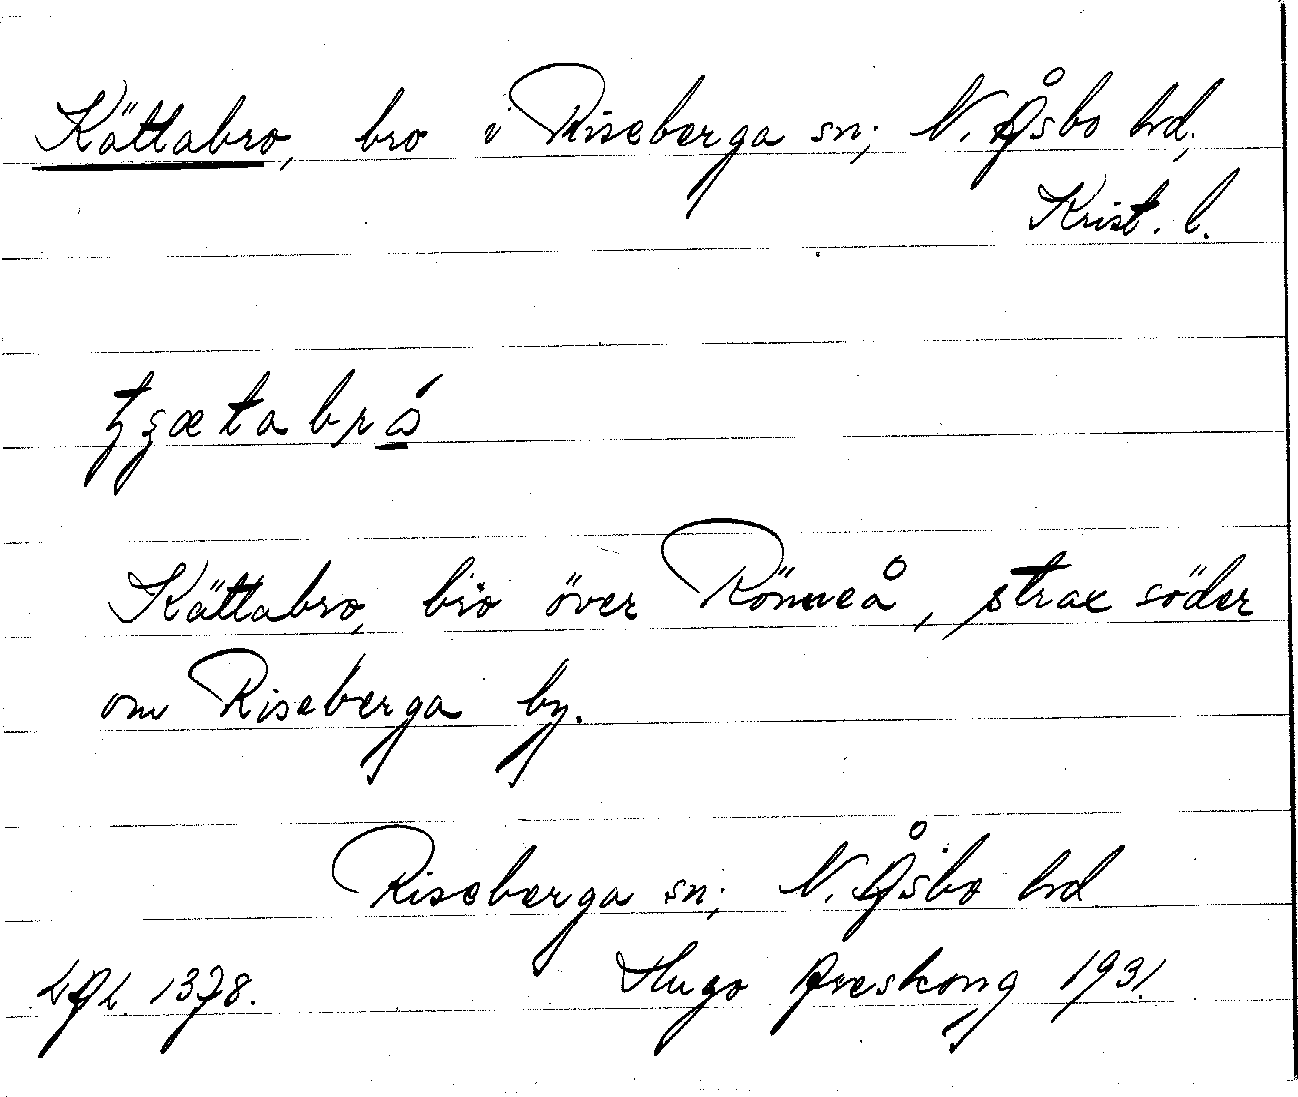 Kättabro, bro i Riseberga sn; N. Åsbo hd,
Krist. l.
Kättabro, bro över Rönneå, strax söder
om Riseberga by.
Riseberga sn; N. Åsbo hd
1378. Hugo Areskoug 1931.